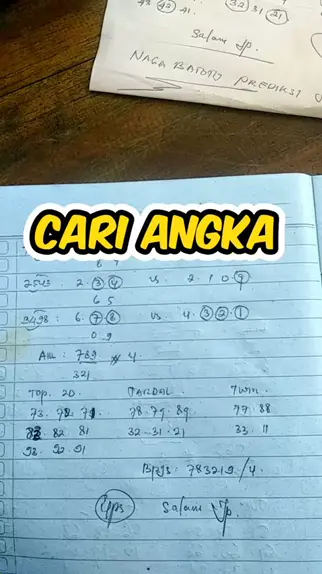 43 (42) 41.
(32) 31 (21)
Salam Jp.
NAGA BATOTO PREDIKSI
CARI ANGKA
2545 : 2 · (3) (4) vs 2 · 1 0 (9)
6 5
9498 : 6 · (7) (8) vs 4 · (3) (2) · (1)
0 9
Am : 789 * 4.
321
Top. 2D. TARDAL. Twin.
73. 72. 71 78. 79. 89. 77. 88
83. 82. 81 32 - 31 · 21 33. 11
93. 92. 91
B/Js : 783219 / 4.
(Yps) Salam Jp.